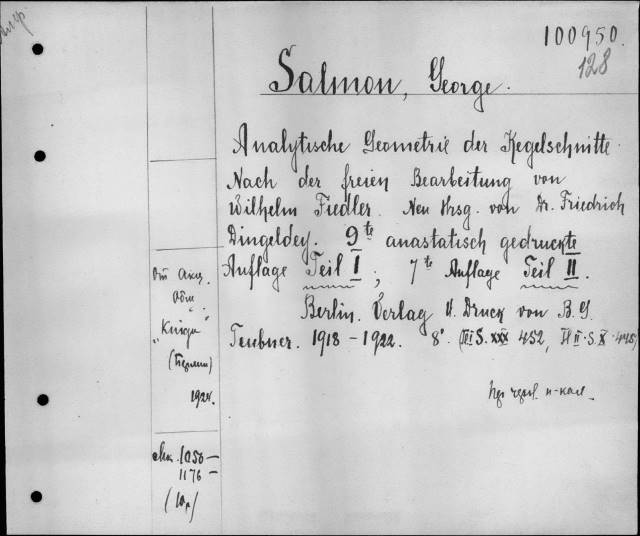 100950.
128
Salmon, George.
Analytische Geometrie der Kegelschnitte.
Nach der freien Bearbeitung von
Wilhelm Fiedler. Neu Hrsg. von Dr. Friedrich
Dingeldey. 9te anastatisch gedruckte
Auflage Teil I; 7te Auflage Teil II.
Berlin. Verlag u. Druck von B. G.
Teubner. 1918-1922. 8°. S. XXX 452, II S. X
От Акц.
Общ.
"Книга"
(Берлин)
1924.
1050-
1176-